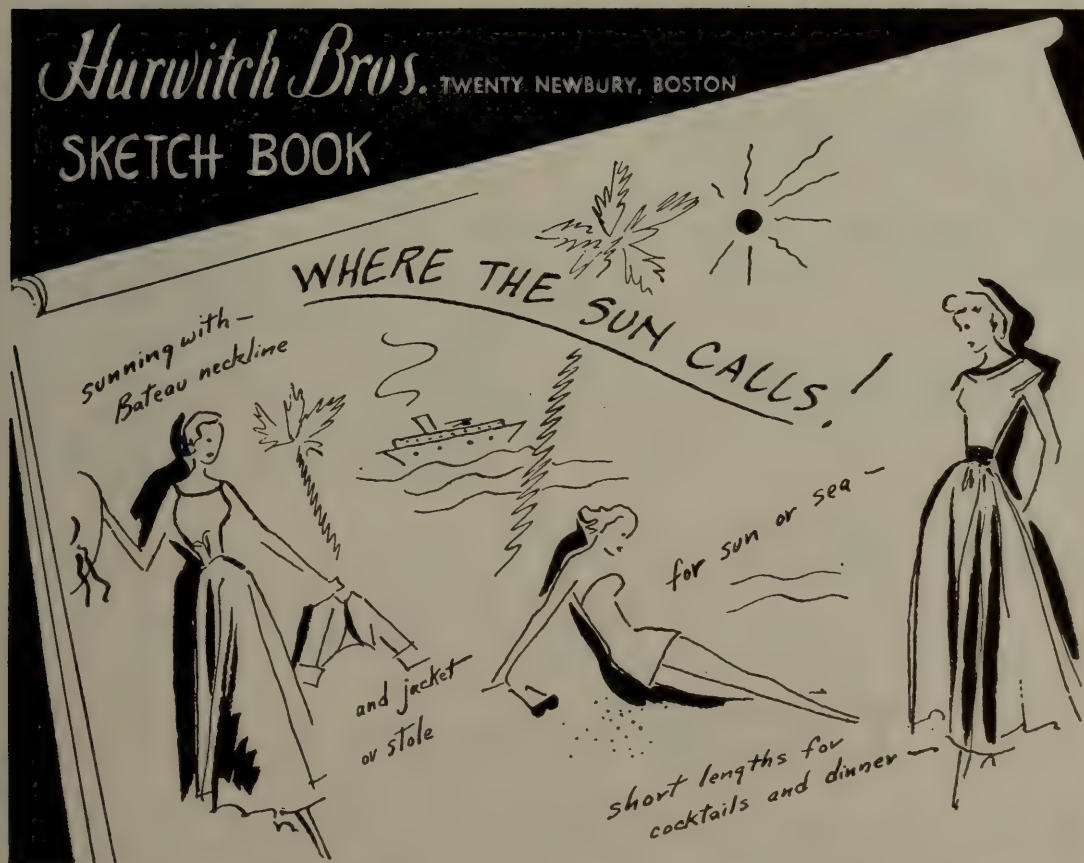 Hurwitch Bros. TWENTY NEWBURY, BOSTON
SKETCH BOOK
WHERE THE SUN CALLS!
sunning with—
Bateau neckline
for sun or sea—
and jacket
or stole
short lengths for
cocktails and dinner—